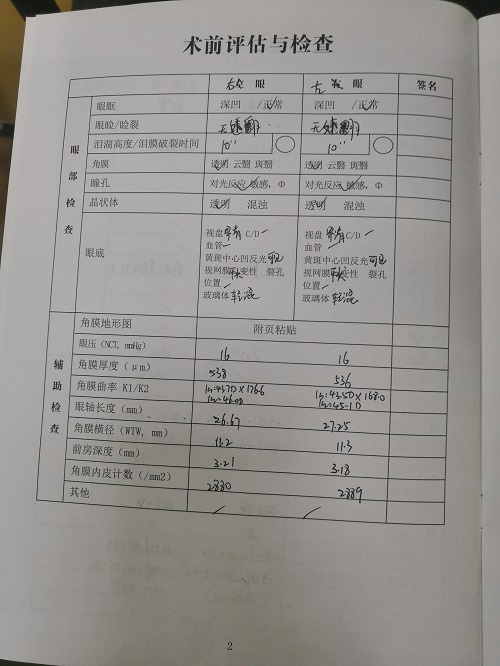 术前评估与检查
右 眼 左 眼 签名
眼部检查
眼眶 深凹 /正常 深凹 /正常
眼睑/睑裂 无 无
泪湖高度/泪膜破裂时间 10'' 10''
角膜 透明 云翳 斑翳 透明 云翳 斑翳
瞳孔 对光反应 敏感, Φ 对光反应 敏感, Φ
晶状体 透明 混浊 透明 混浊
眼底
视盘 C/D 视盘 C/D
血管 血管
黄斑中心凹反光可见 黄斑中心凹反光可见
视网膜 变性 裂孔 视网膜 变性 裂孔
位置 位置
玻璃体轻混 玻璃体轻混
辅助检查
角膜地形图 附页粘贴
眼压 (NCT, mmHg) 16 16
角膜厚度 (μm) 538 536
角膜曲率 K1/K2 K1:43.7D×176.6 K1:43.5D×168.0
K2:46.0D K2:45.1D
眼轴长度 (mm) 26.67 27.25
角膜横径 (WTW, mm) 11.2 11.3
前房深度 (mm) 3.21 3.18
角膜内皮计数 (/mm2) 2880 2889
其他 / /
2